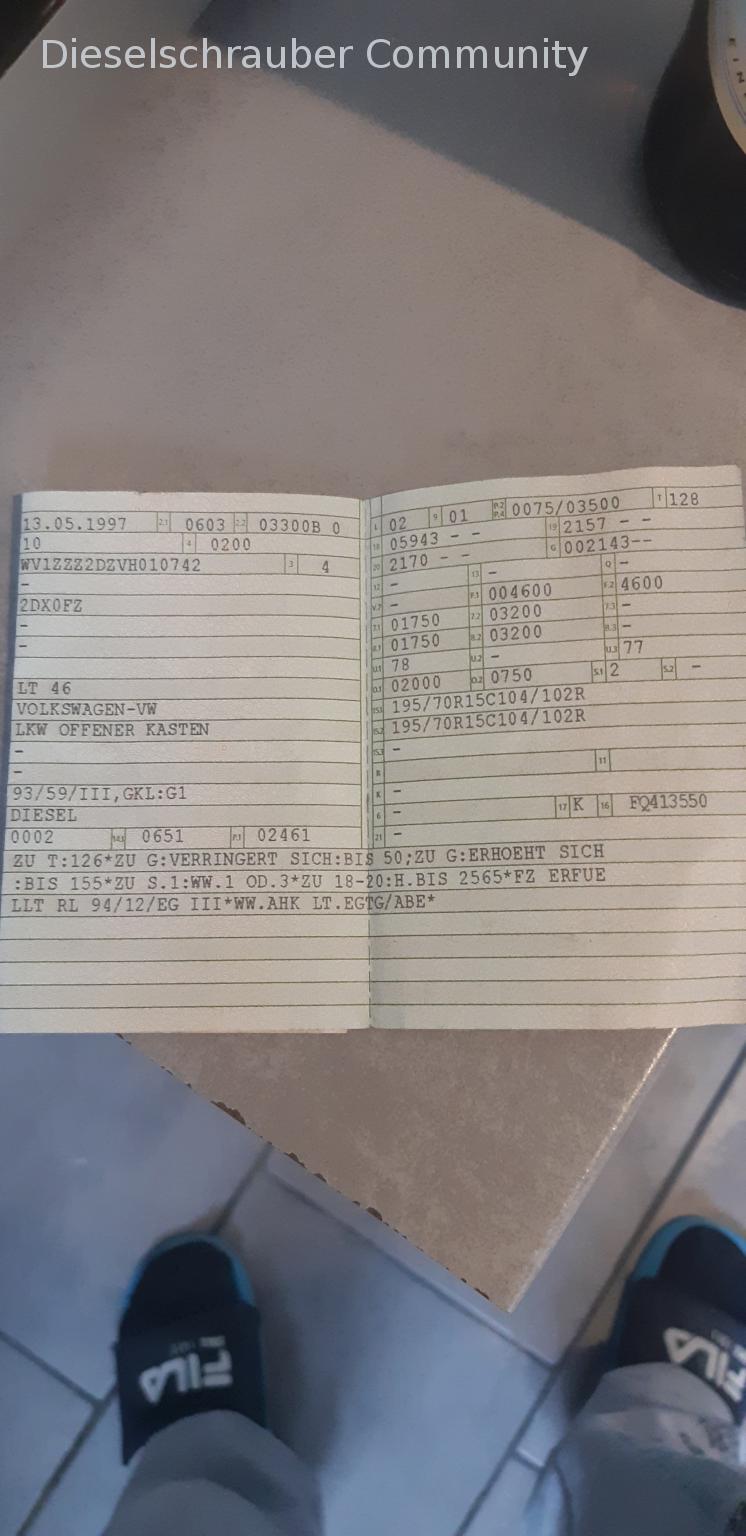 Dieselschrauber Community
13.05.1997 2.1 0603 2.2 03300B 0
10 4 0200
WV1ZZZ2DZVH010742 3 4
-
2DX0FZ
-
-
LT 46
VOLKSWAGEN-VW
LKW OFFENER KASTEN
-
-
93/59/III,GKL:G1
DIESEL
0002 0651 P.1 02461
L 02 9 01 P.2 P.4 0075/03500 T 128
18 05943 - - 19 2157 - -
20 2170 - - G 002143--
12 - 13 - Q -
V.7 - F.1 004600 F.2 4600
7.1 01750 7.2 03200 7.3 -
8.1 01750 8.2 03200 8.3 -
U.1 78 U.2 - U.3 77
O.1 02000 O.2 0750 S.1 2 S.2 -
15.1 195/70R15C104/102R
15.2 195/70R15C104/102R
15.3 -
R 11
K -
6 - 17 K 16 FQ413550
21 -
ZU T:126*ZU G:VERRINGERT SICH:BIS 50;ZU G:ERHOEHT SICH
:BIS 155*ZU S.1:WW.1 OD.3*ZU 18-20:H.BIS 2565*FZ ERFUE
LLT RL 94/12/EG III*WW.AHK LT.EGTG/ABE*
FILA
FILA